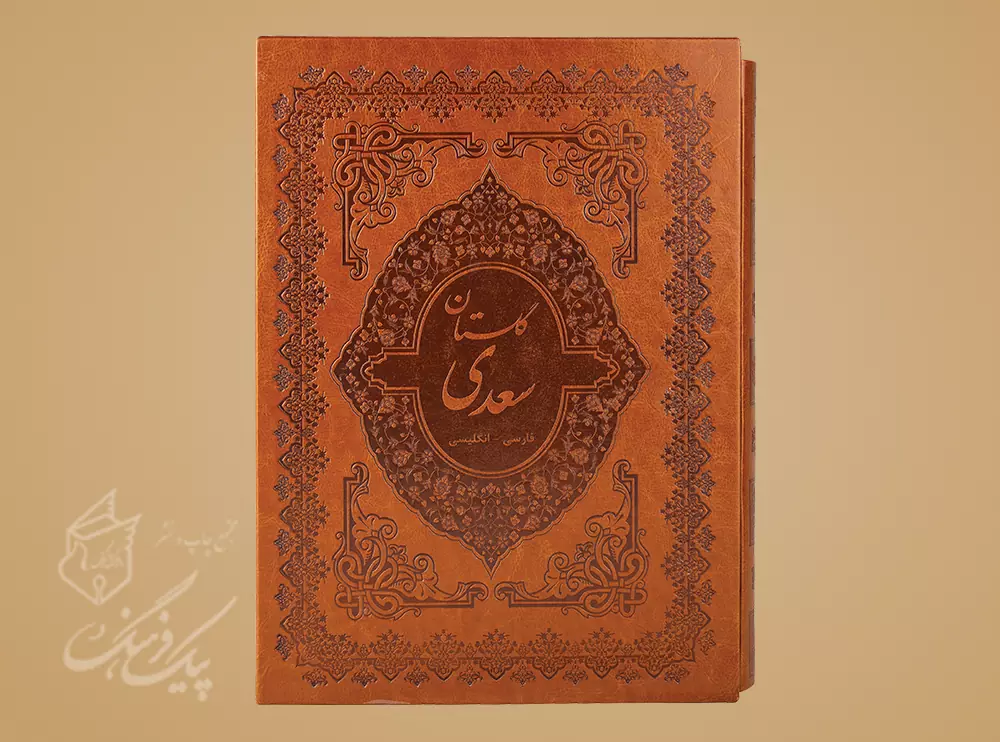 گلستان
سعدی
فارسی - انگلیسی
مجتمع چاپ و نشر
پیک فرهنگ